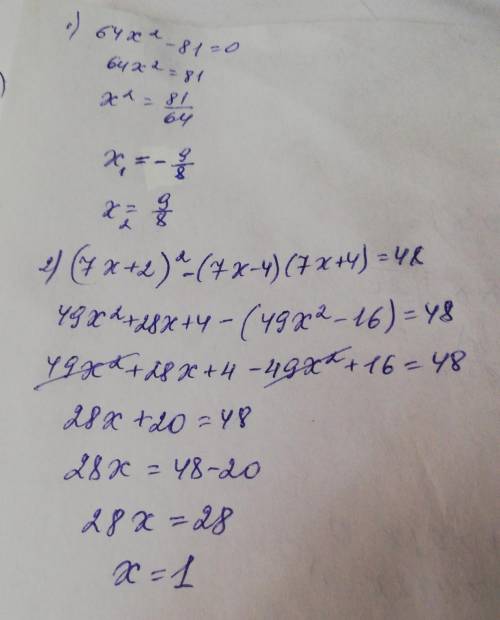 1) 64x² - 81 = 0
64x² = 81
x² = 81/64
x₁ = - 9/8
x₂ = 9/8
2) (7x+2)² - (7x-4)(7x+4) = 48
49x² + 28x + 4 - (49x² - 16) = 48
49x² + 28x + 4 - 49x² + 16 = 48
28x + 20 = 48
28x = 48 - 20
28x = 28
x = 1